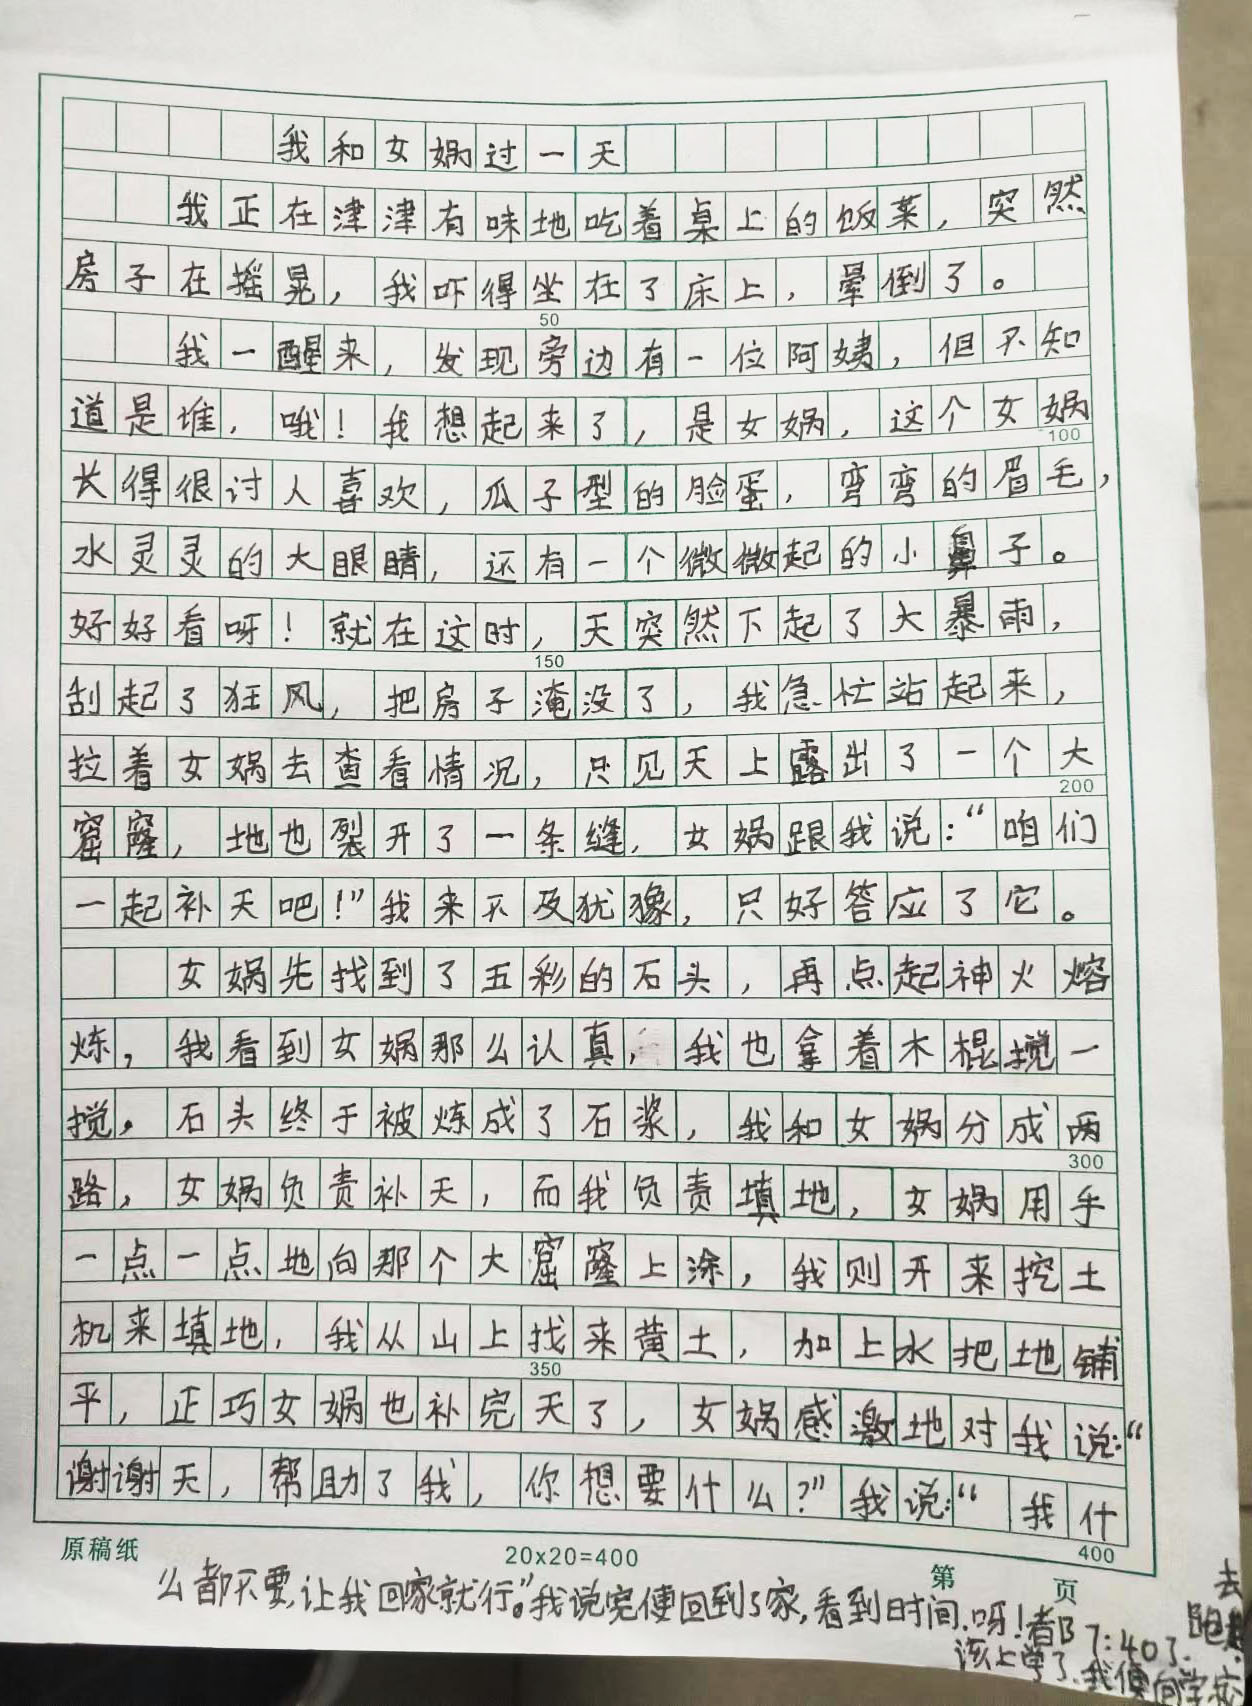 我和女娲过一天
我正在津津有味地吃着桌上的饭菜，突然
房子在摇晃，我吓得坐在了床上，晕倒了。
50
我一醒来，发现旁边有一位阿姨，但不知
道是谁，哦！我想起来了，是女娲，这个女娲
100
长得很讨人喜欢，瓜子型的脸蛋，弯弯的眉毛，
水灵灵的大眼睛，还有一个微微起的小鼻子。
好好看呀！就在这时，天突然下起了大暴雨，
150
刮起了狂风，把房子淹没了，我急忙站起来，
拉着女娲去查看情况，只见天上露出了一个大
200
窟窿，地也裂开了一条缝，女娲跟我说：“咱们
一起补天吧！”我来不及犹豫，只好答应了它。
女娲先找到了五彩的石头，再点起神火熔
炼，我看到女娲那么认真，我也拿着木棍搅一
搅。石头终于被炼成了石浆，我和女娲分成两
300
路，女娲负责补天，而我负责填地，女娲用手
一点一点地向那个大窟窿上涂，我则开来挖土
机来填地，我从山上找来黄土，加上水把地铺
350
平，正巧女娲也补完天了，女娲感激地对我说：“
谢谢天，帮助了我，你想要什么？”我说：“我什
400
原稿纸 20x20=400 第 页
么都不要，让我回家就行。”我说完便回到了家，看到时间，呀！都7:40了，
该上学了，我便向学校
跑去